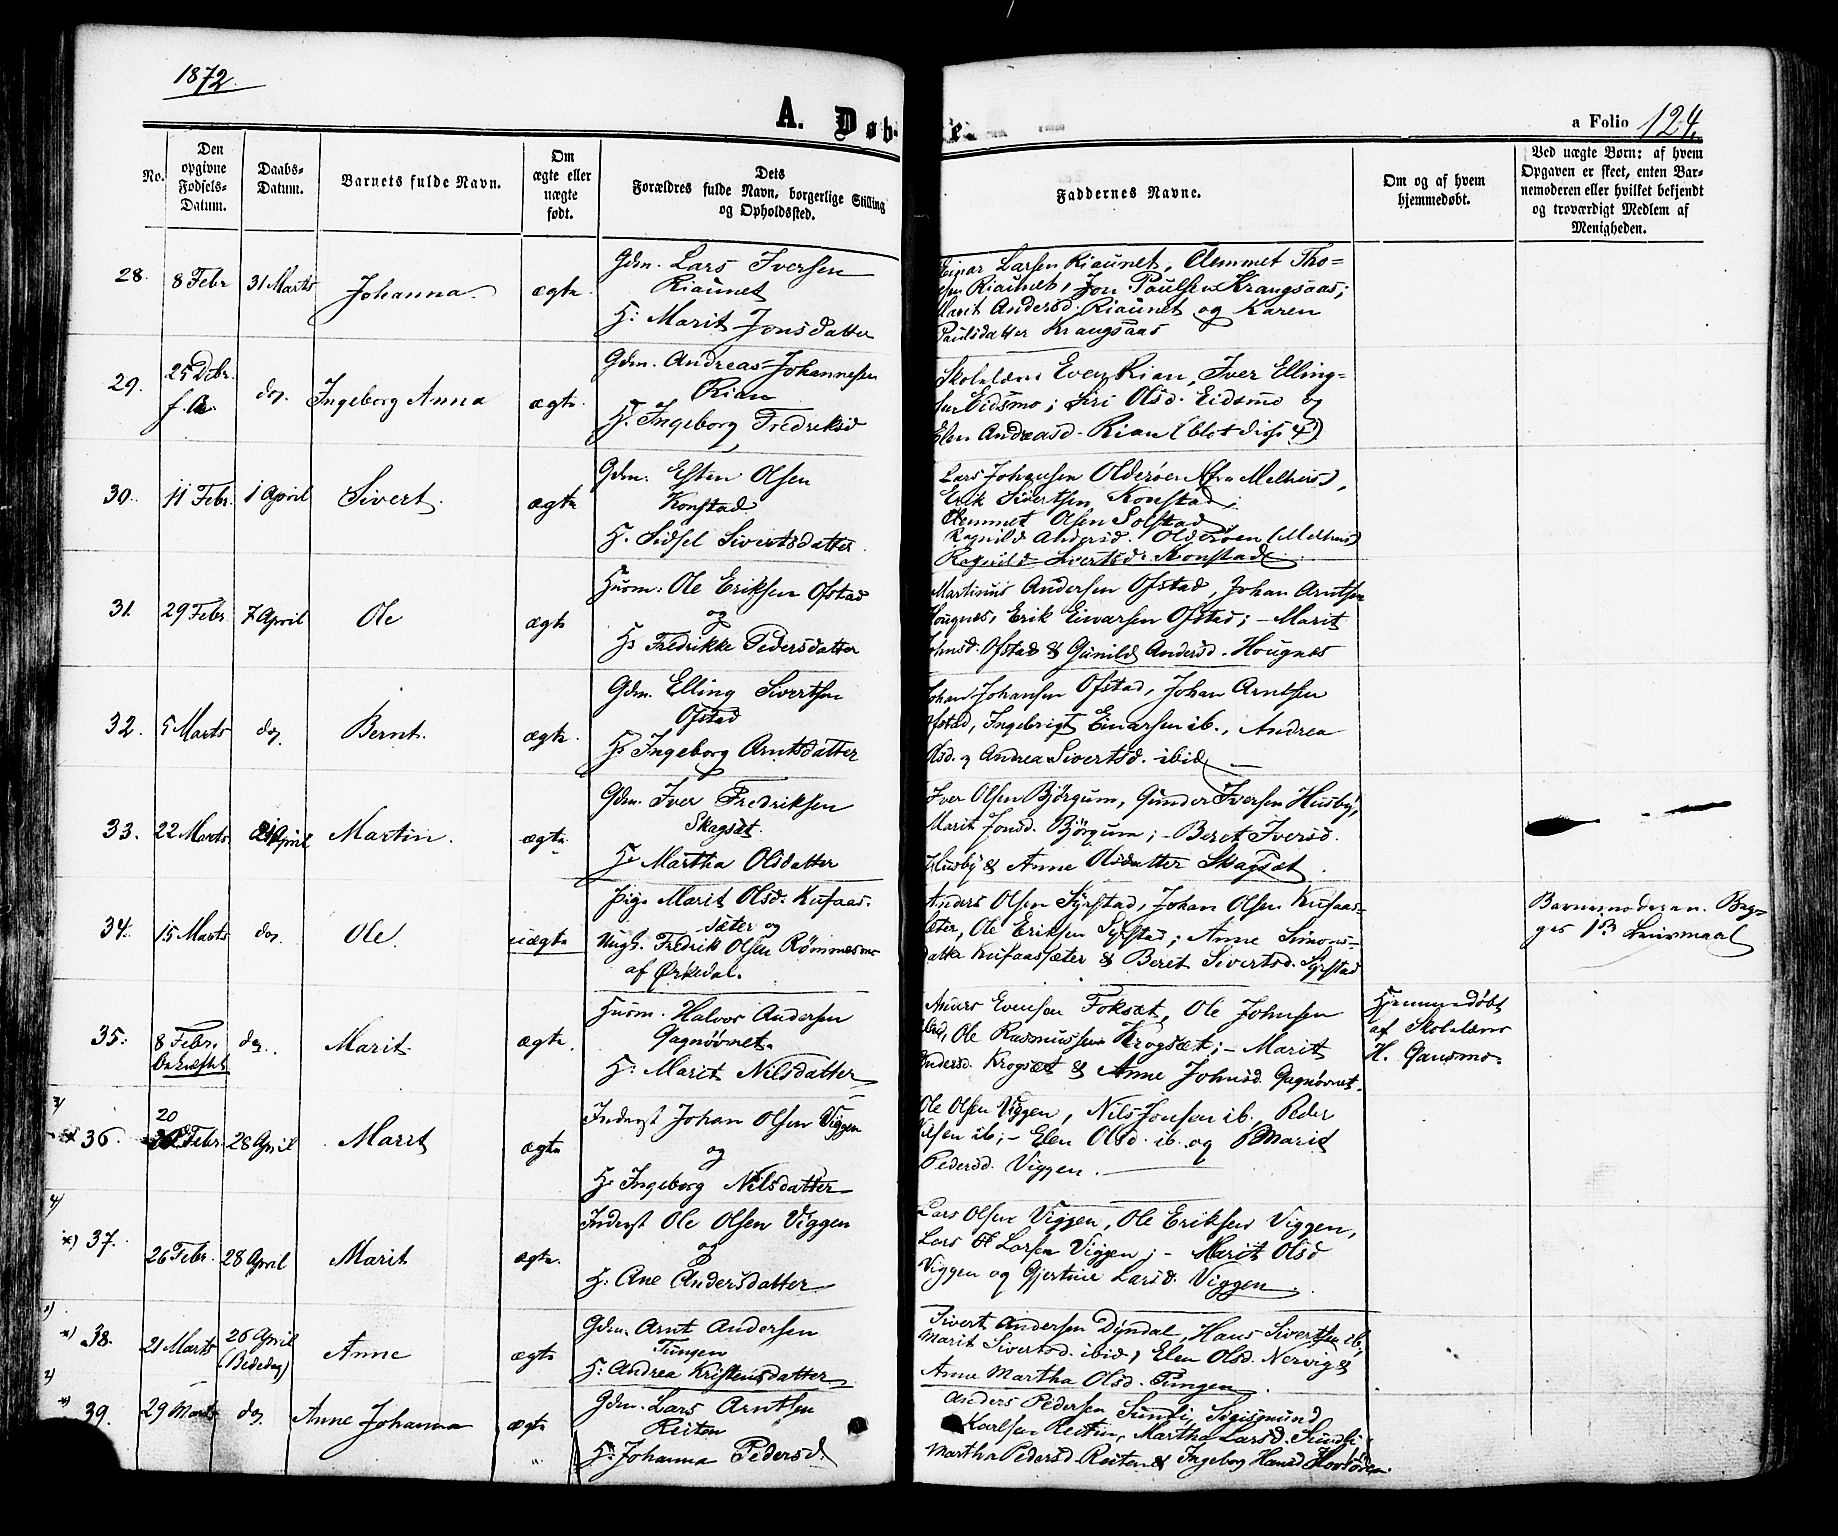 1872.
A. Døb-
e.
a Folio 124.
No.
Den opgivne Fødsels-Datum.
Daabs-Datum.
Barnets fulde Navn.
Om ægte eller uægte født.
Dets Forældres fulde Navn, borgerlige Stilling og Opholdssted.
Faddernes Navne.
Om og af hvem hjemmedøbt.
Ved uægte Børn: af hvem Opgaven er skeet, enten Barnemoderen eller hvilket bekjendt og troværdigt Medlem af Menigheden.
28. 8 Febr 31 Marts Johanna. ægte.
Gdm. Lars Iversen
Riaunet
H: Marit Jonsdatter
Larsen Riaunet, Clemmet Tho=
Riaunet, Jon Paulsen Krangsaas;
Marit Andersd. Riaunet og Karen
Paulsdatter Krangsaas
29. 25 Debr. f. A. do. Ingeborg Anna ægte
Gdm. Andreas Johannesen
Rian
H. Ingeborg Fredriksd
Skolelærer Even Rian, Iver Elling=
sen Eidsmo; Siri Olsd. Eidsmo og
Elen Andreasd. Rian (blot disse 4)
30. 11 Febr. 1 April Sivert. ægte
Gdm. Esten Olsen
Konstad
H. Sidsel Sivertsdatter
Lars Johnsen Olderøien (fra Melhus),
Erik Sivertsen Konstad,
Clemmet Olsen Solstad
Ragnild Andersd. Olderøen (Melhus)
Ragnild Sivertsd. Konstad
31. 29 Febr. 7 April Ole ægte
Husm: Ole Eriksen Ofstad
og
H: Fredrikke Pedersdatter
Martinus Andersen Ofstad, Johan Arntsen
Hougnes, Erik Einarsen Ofstad; - Marit
Johnsd. Ofstad & Gunild Andersd. Hougnes
32. 5 Marts do. Bernt. ægte.
Gdm. Elling Sivertsen
Ofstad
H: Ingeborg Arntsdatter
Johan Johansen Ofstad, Johan Arntsen
Ofstad, Ingebrigt Einarsen ib., Andrea
Olsd. og Andrea Sivertsd. ibid.
33. 22 Marts. 21 April Martin. ægte.
Gdm. Iver Fredriksen
Skagsæt.
H: Martha Olsdatter
Iver Olsen Bjørgum, Gunder Iversen Husby,
Marit Jonsd. Bjørgum; - Beret Iversd.
Husby & Anne Olsdatter Skagsæt.
34. 15 Marts do. Ole. uægte
Pige Marit Olsd. Kufaas-
sæter og
Ungk. Fredrik Olsen Rømmesmo
af Ørkedal.
Anders Olsen Syrstad, Johan Olsen Kufaas-
sæter, Ole Eriksen Syrstad; Anne Simons-
datter Kufaassæter & Beret Sivertsd. Syrstad
Barnemoderen. Beg-
ges 1ste Leiermaal
35. 8 Febr. Bekræftet do. Marit. ægte.
Husm. Halvor Andersen
Gagnøvnet.
H: Marit Nilsdatter
Anders Evensen Foksæt, Ole Johnsen
ibid, Ole Rasmussen Krogsæt; - Marit
Andersd. Krogsæt & Anne Johnsd. Gagnøvnet.
Hjemmedøbt
af Skolelærer
H. Gausmo.
36. 20 Febr. 28 April Marit ægte
Inderst Johan Olsen Viggen
og
H: Ingeborg Nilsdatter
Ole Olsen Viggen, Nils Jonsen ib., Peder
Olsen ib; - Elen Olsd. ib. og Marit
Pedersd. Viggen.
37. 26 Febr. 28 April Marit ægte.
Inderst Ole Olsen Viggen
og
H: Ane Andersdatter
Lars Olsen Viggen, Ole Eriksen Viggen,
Lars Larsen Viggen; - Marit Olsd
Viggen og Gjertine Larsd. Viggen
38. 21 Marts 26 April (Bededag) Anne ægte
Gdm. Arnt Andersen
Tungen
H: Andrea Kristensdatter
Sivert Andersen Dyndal, Hans Sivertsen ib,
Marit Sivertsd. ibid, Elen Olsd. Nervig &
Anne Martha Olsd. Tungen.
39. 29 Marts do. Anne Johanna ægte
Gdm. Lars Arntsen
Reiten
H: Johanna Pedersd.
Anders Pedersen Sundli, Sigismund
Karlsen Reiten, Martha Larsd. Sundli
Martha Pedersd Reiten & Ingeborg Hansd